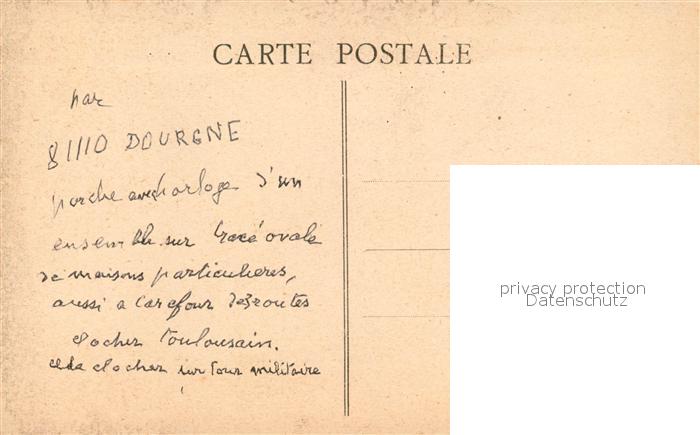 CARTE POSTALE
par
81110 DOURGNE
porche avec horloge d'un
ensemble sur tracé ovale
de maisons particulieres,
aussi a Carefour 3 routes
clocher Toulousain.
clocher sur tour militaire
privacy protection
Datenschutz